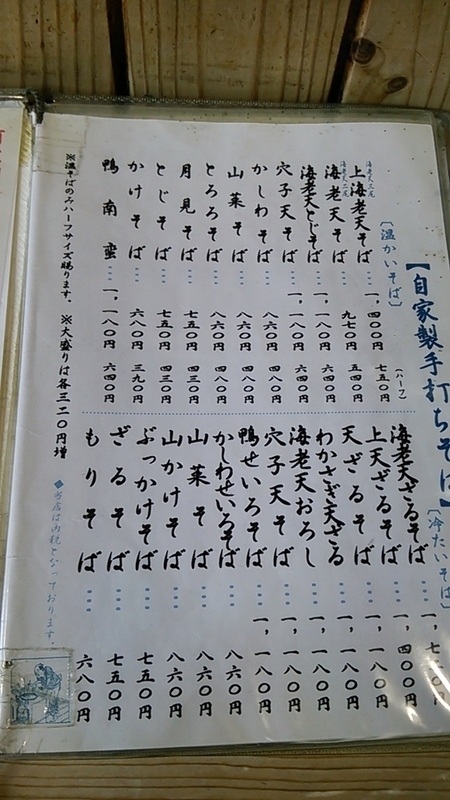 【自家製手打ちそば
〔温かいそば〕
(ハーフ)
海老天三尾
上海老天そば … 一,四〇〇円 七五〇円
海老天二尾
海老天そば … 九七〇円 五四〇円
海老天とじそば … 一,一八〇円 六四〇円
穴子天そば … 一,一八〇円 六四〇円
かしわそば … 八六〇円 四八〇円
山菜そば … 八六〇円 四八〇円
とろろそば … 八六〇円 四八〇円
月見そば … 七五〇円 四三〇円
とじそば … 七五〇円 四三〇円
かけそば … 六八〇円 三九〇円
鴨南蛮 … 一,一八〇円 六四〇円
〔冷たいそば〕
海老天ざるそば …
上天ざるそば … 一,四〇〇円
天ざるそば … 一,一八〇円
わかさぎ天ざる … 一,一八〇円
海老天おろし … 一,一八〇円
穴子天そば … 一,一八〇円
鴨せいろそば … 一,一八〇円
かしわせいろそば … 八六〇円
山菜そば … 八六〇円
山かけそば … 八六〇円
ぶっかけそば … 七五〇円
ざるそば … 七五〇円
もりそば … 六八〇円
※温そばのみハーフサイズ賜ります。 ※大盛りは各三二〇円増
◆当店は内税となっております。